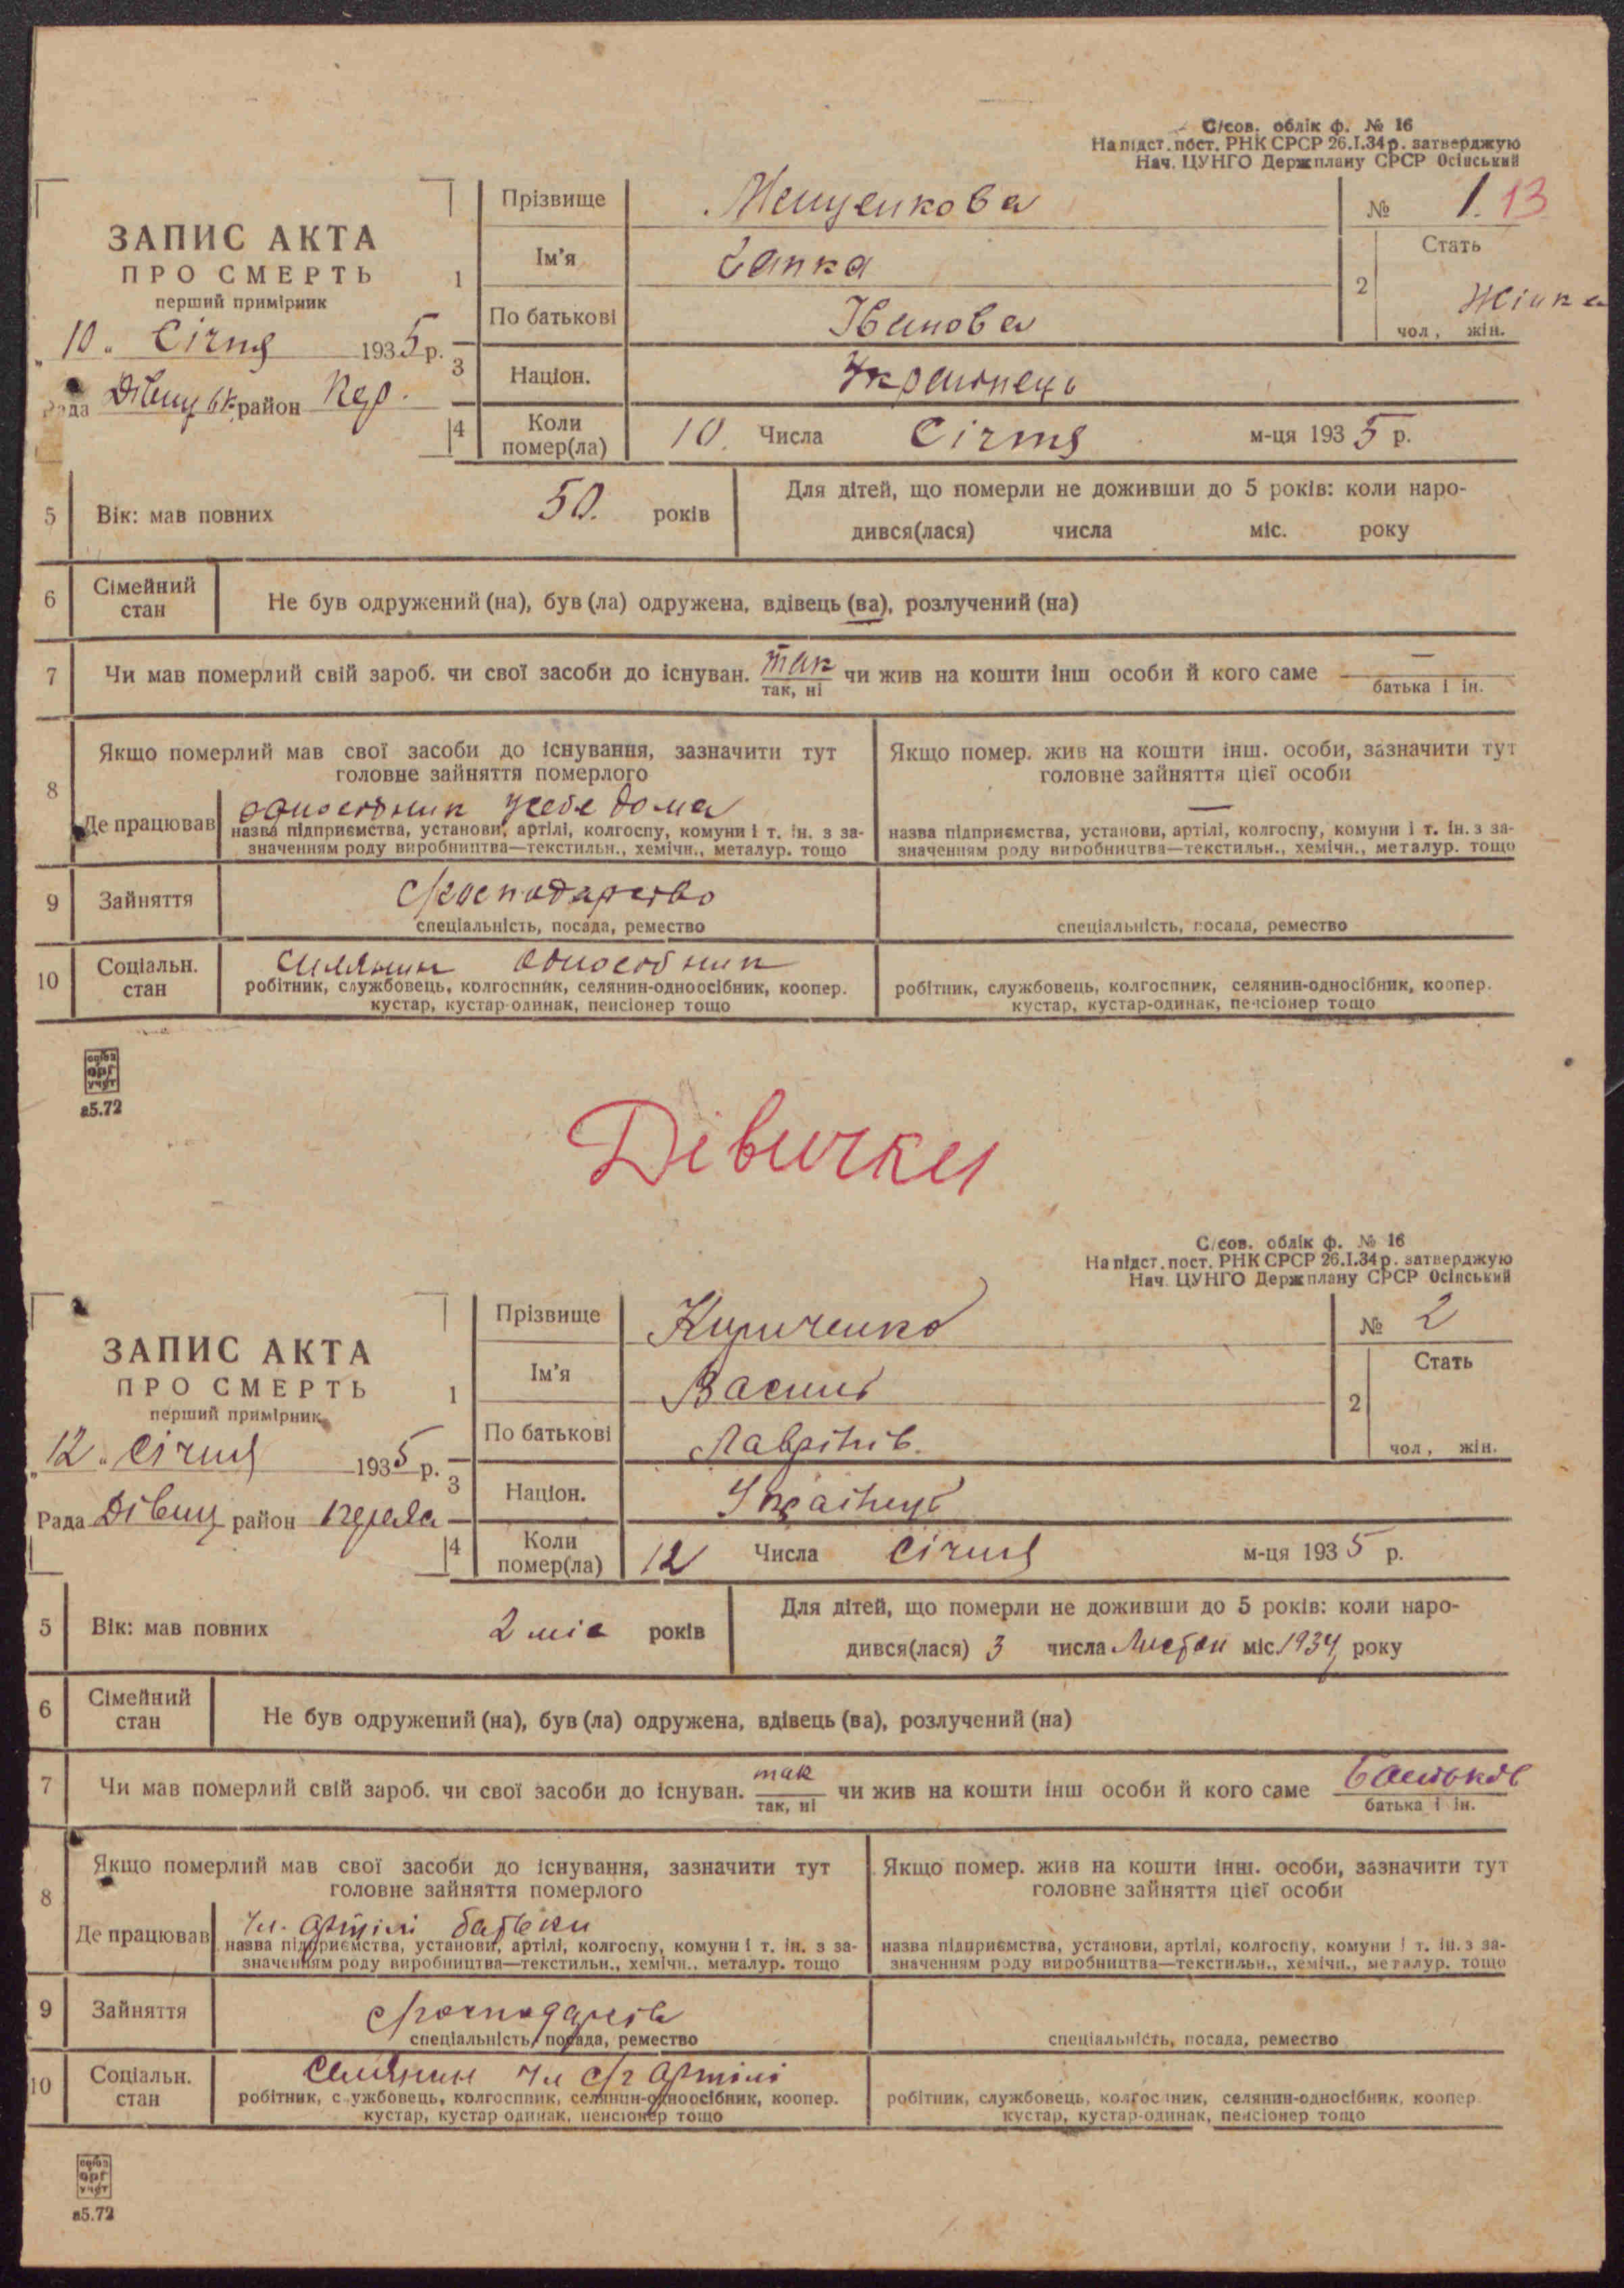 С/сов. облік ф. № 16
На підст. пост. РНК СРСР 26.I.34 р. затверджую
Нач. ЦУНГО Держплану СРСР Осінський
ЗАПИС АКТА
ПРО СМЕРТЬ
перший примірник
„10„ Січня 1935 р.
Рада Дівич район
1 Прізвище Мещенкова
Ім'я Ганка
По батькові Іванова
№ 1. 13
2 Стать Жінка
чол, жін.
3 Націон. Українець
4 Коли помер(ла) 10. Числа Січня м-ця 1935 р.
5 Вік: мав повних 50. років
Для дітей, що померли не доживши до 5 років: коли наро-
дився(лася) числа міс. року
6 Сімейний стан Не був одружений (на), був (ла) одружена, вдівець (ва), розлучений (на)
7 Чи мав померлий свій зароб. чи свої засоби до існуван. так чи жив на кошти інш особи й кого саме —
так, ні батька і ін.
8 Якщо померлий мав свої засоби до існування, зазначити тут
головне зайняття померлого
Якщо помер. жив на кошти інш. особи, зазначити тут
головне зайняття цієї особи
Де працював дома —
назва підприємства, установи, артілі, колгоспу, комуни і т. ін. з за-
значенням роду виробництва—текстильн., хемічн., металур. тощо
назва підприємства, установи, артілі, колгоспу, комуни і т. ін. з за-
значенням роду виробництва—текстильн., хемічн., металур. тощо
9 Зайняття с/господарство
спеціальність, посада, ремество
спеціальність, посада, ремество
10 Соціальн. стан
робітник, службовець, колгоспник, селянин-одноосібник, коопер.
кустар, кустар-одинак, пенсіонер тощо
робітник, службовець, колгоспник, селянин-односібник, коопер.
кустар, кустар-одинак, пенсіонер тощо
союз
орг
учет
а5.72
Дівички
С/сов. облік ф. № 16
На підст. пост. РНК СРСР 26.I.34 р. затверджую
Нач. ЦУНГО Держплану СРСР Осінський
ЗАПИС АКТА
ПРО СМЕРТЬ
перший примірник
„12„ Січня 1935 р.
Рада Дівич район
1 Прізвище Кириченко
Ім'я Василь
По батькові Лаврінів.
№ 2
2 Стать
чол, жін.
3 Націон. Українець
4 Коли помер(ла) 12 Числа Січня м-ця 1935 р.
5 Вік: мав повних 2 міс років
Для дітей, що померли не доживши до 5 років: коли наро-
дився(лася) 3 числа Листоп міс. 1934 року
6 Сімейний стан Не був одружений (на), був (ла) одружена, вдівець (ва), розлучений (на)
7 Чи мав померлий свій зароб. чи свої засоби до існуван. так чи жив на кошти інш особи й кого саме батьків
так, ні батька і ін.
8 Якщо померлий мав свої засоби до існування, зазначити тут
головне зайняття померлого
Якщо помер. жив на кошти інш. особи, зазначити тут
головне зайняття цієї особи
Де працював чл. артілі батьки
назва підприємства, установи, артілі, колгоспу, комуни і т. ін. з за-
значенням роду виробництва—текстильн., хемічн., металур. тощо
назва підприємства, установи, артілі, колгоспу, комуни і т. ін. з за-
значенням роду виробництва—текстильн., хемічн., металур. тощо
9 Зайняття
спеціальність, посада, ремество
спеціальність, посада, ремество
10 Соціальн. стан Селянин чл с/г артілі
робітник, службовець, колгоспник, селянин-одноосібник, коопер.
кустар, кустар одинак, пенсіонер тощо
робітник, службовець, колгоспник, селянин-односібник, коопер.
кустар, кустар-одинак, пенсіонер тощо
союз
орг
учет
а5.72